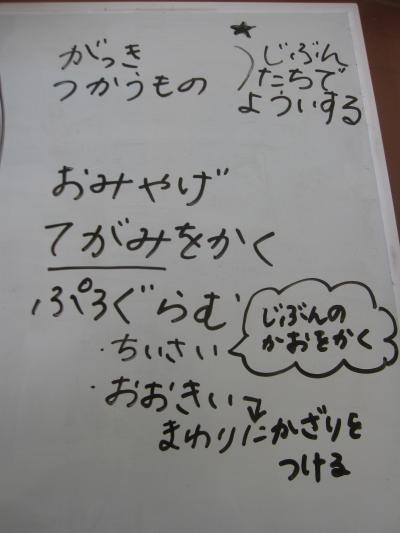 がっき
つかうもの
★
じぶん
たちで
よういする
おみやげ
てがみをかく
ぷろぐらむ
・ちいさい
じぶんの
かおをかく
・おおきい→
まわりにかざりを
つける